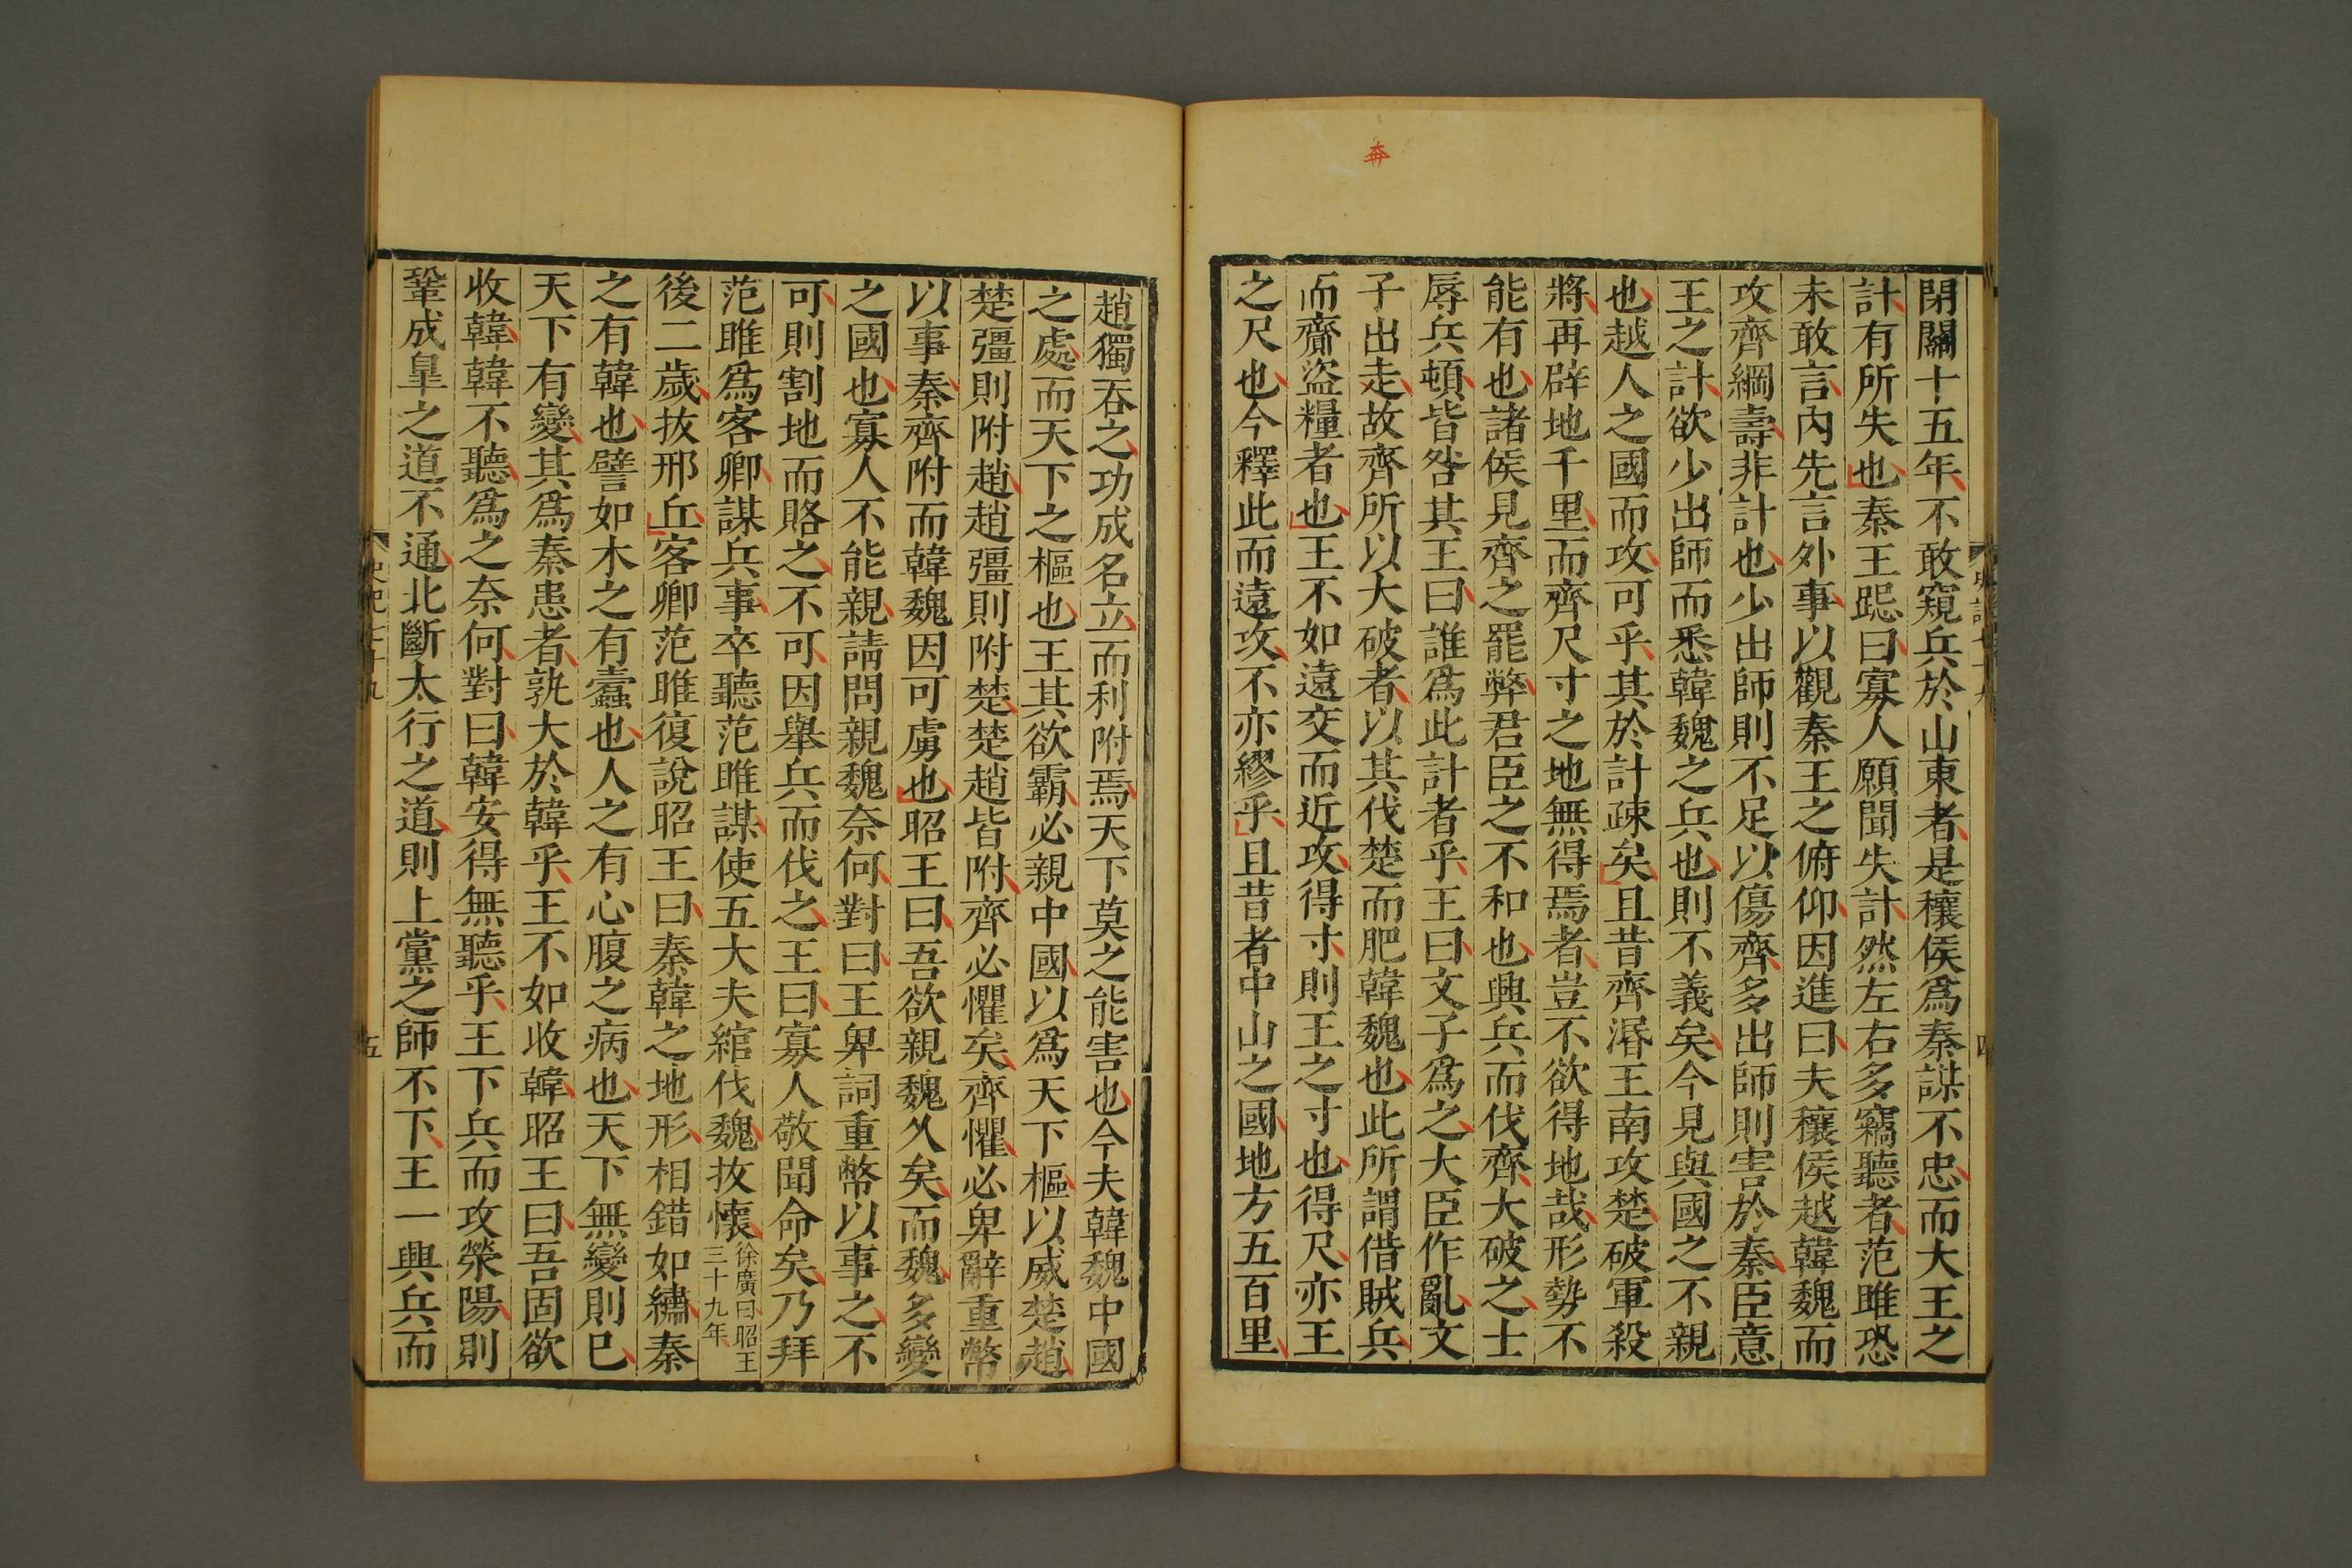 閉關十五年不敢窺兵於山東者是穰侯爲秦謀不忠而大王之
計有所失也秦王跽曰寡人願聞失計然左右多竊聽者范雎恐
未敢言內先言外事以觀秦王之俯仰因進曰夫穰侯越韓魏而
攻齊綱壽非計也少出師則不足以傷齊多出師則害於秦臣意
王之計欲少出師而悉韓魏之兵也則不義矣今見與國之不親
也越人之國而攻可乎其於計疎矣且昔齊湣王南攻楚破軍殺
將再辟地千里而齊尺寸之地無得焉者豈不欲得地哉形勢不
能有也諸侯見齊之罷弊君臣之不和也興兵而伐齊大破之士
辱兵頓皆咎其王曰誰爲此計者乎王曰文子爲之大臣作亂文
子出走故齊所以大破者以其伐楚而肥韓魏也此所謂借賊兵
而齎盜糧者也王不如遠交而近攻得寸則王之寸也得尺亦王
之尺也今釋此而遠攻不亦繆乎且昔者中山之國地方五百里
趙獨吞之功成名立而利附焉天下莫之能害也今夫韓魏中國
之處而天下之樞也王其欲霸必親中國以爲天下樞以威楚趙
楚彊則附趙趙彊則附楚楚趙皆附齊必懼矣齊懼必卑辭重幣
以事秦齊附而韓魏因可虜也昭王曰吾欲親魏久矣而魏多變
之國也寡人不能親請問親魏奈何對曰王卑詞重幣以事之不
可則割地而賂之不可因舉兵而伐之王曰寡人敬聞命矣乃拜
范雎爲客卿謀兵事卒聽范雎謀使五大夫綰伐魏拔懷徐廣曰昭王三十九年
後二歲拔邢丘客卿范雎復說昭王曰秦韓之地形相錯如繡秦
之有韓也譬如木之有蠹也人之有心腹之病也天下無變則已
天下有變其爲秦患者孰大於韓乎王不如收韓昭王曰吾固欲
收韓韓不聽爲之奈何對曰韓安得無聽乎王下兵而攻滎陽則
鞏成皐之道不通北斷太行之道則上黨之師不下王一興兵而
史記七十九
五